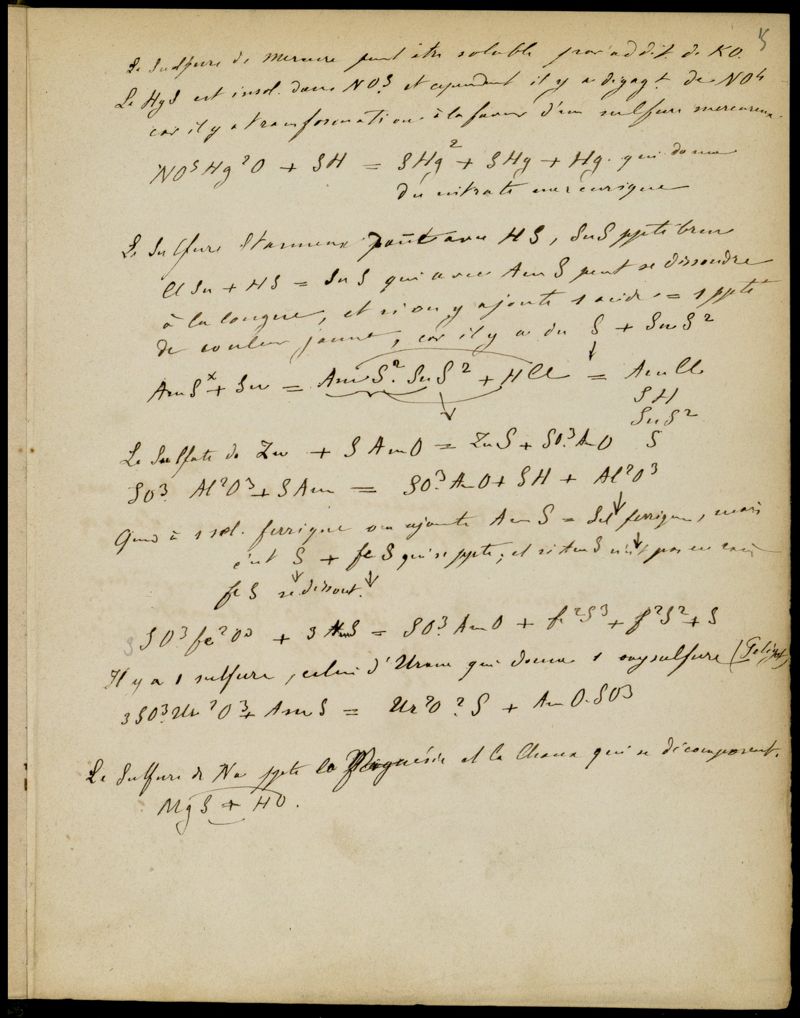 5
Le Sulfure de mercure peut être soluble par addit. de KO.
Le HgS est insol. dans NO5. et cependant il y a dégagt. de NO4
car il y a transformation à la faveur d'un sulfure mercureux.
NO5Hg2O + SH = SHg2 + SHg + Hg. qui donne
du nitrate mercurique
Le Sulfure Stanneux avec HS, SnS ppté brun
ClSn + HS = SnS qui avec AmS peut se dissoudre
à la longue, et si on y ajoute 1 acide = 1 ppté
de couleur jaune, car il y a du S + SnS2
AmSx + Sn = AmS2. SnS2 + HCl = AmCl
SH
SnS2
S
Le Sulfate de Zn + SAmO = ZnS + SO3.AmO
SO3. Al2O3 + SAm = SO3.AmO + SH + Al2O3
Quand à 1 sel. ferrique on ajoute AmS = Sel ferrique, mais
c'est S + feS qui se ppte; et si AmS n'est pas en
feS se dissout.
3SO3fe2O3 + 3AmS = SO3.AmO + f2S3 + f2S2 + S
Il y a 1 sulfure, celui d'Urane qui donne 1 oxysulfure (Peligot)
3SO3.Ur2O3 + AmS = Ur2O2S + AmO.SO3
Le Sulfure de Na ppte la Magnésie et la Chaux qui se décomposent.
MgS + HO.